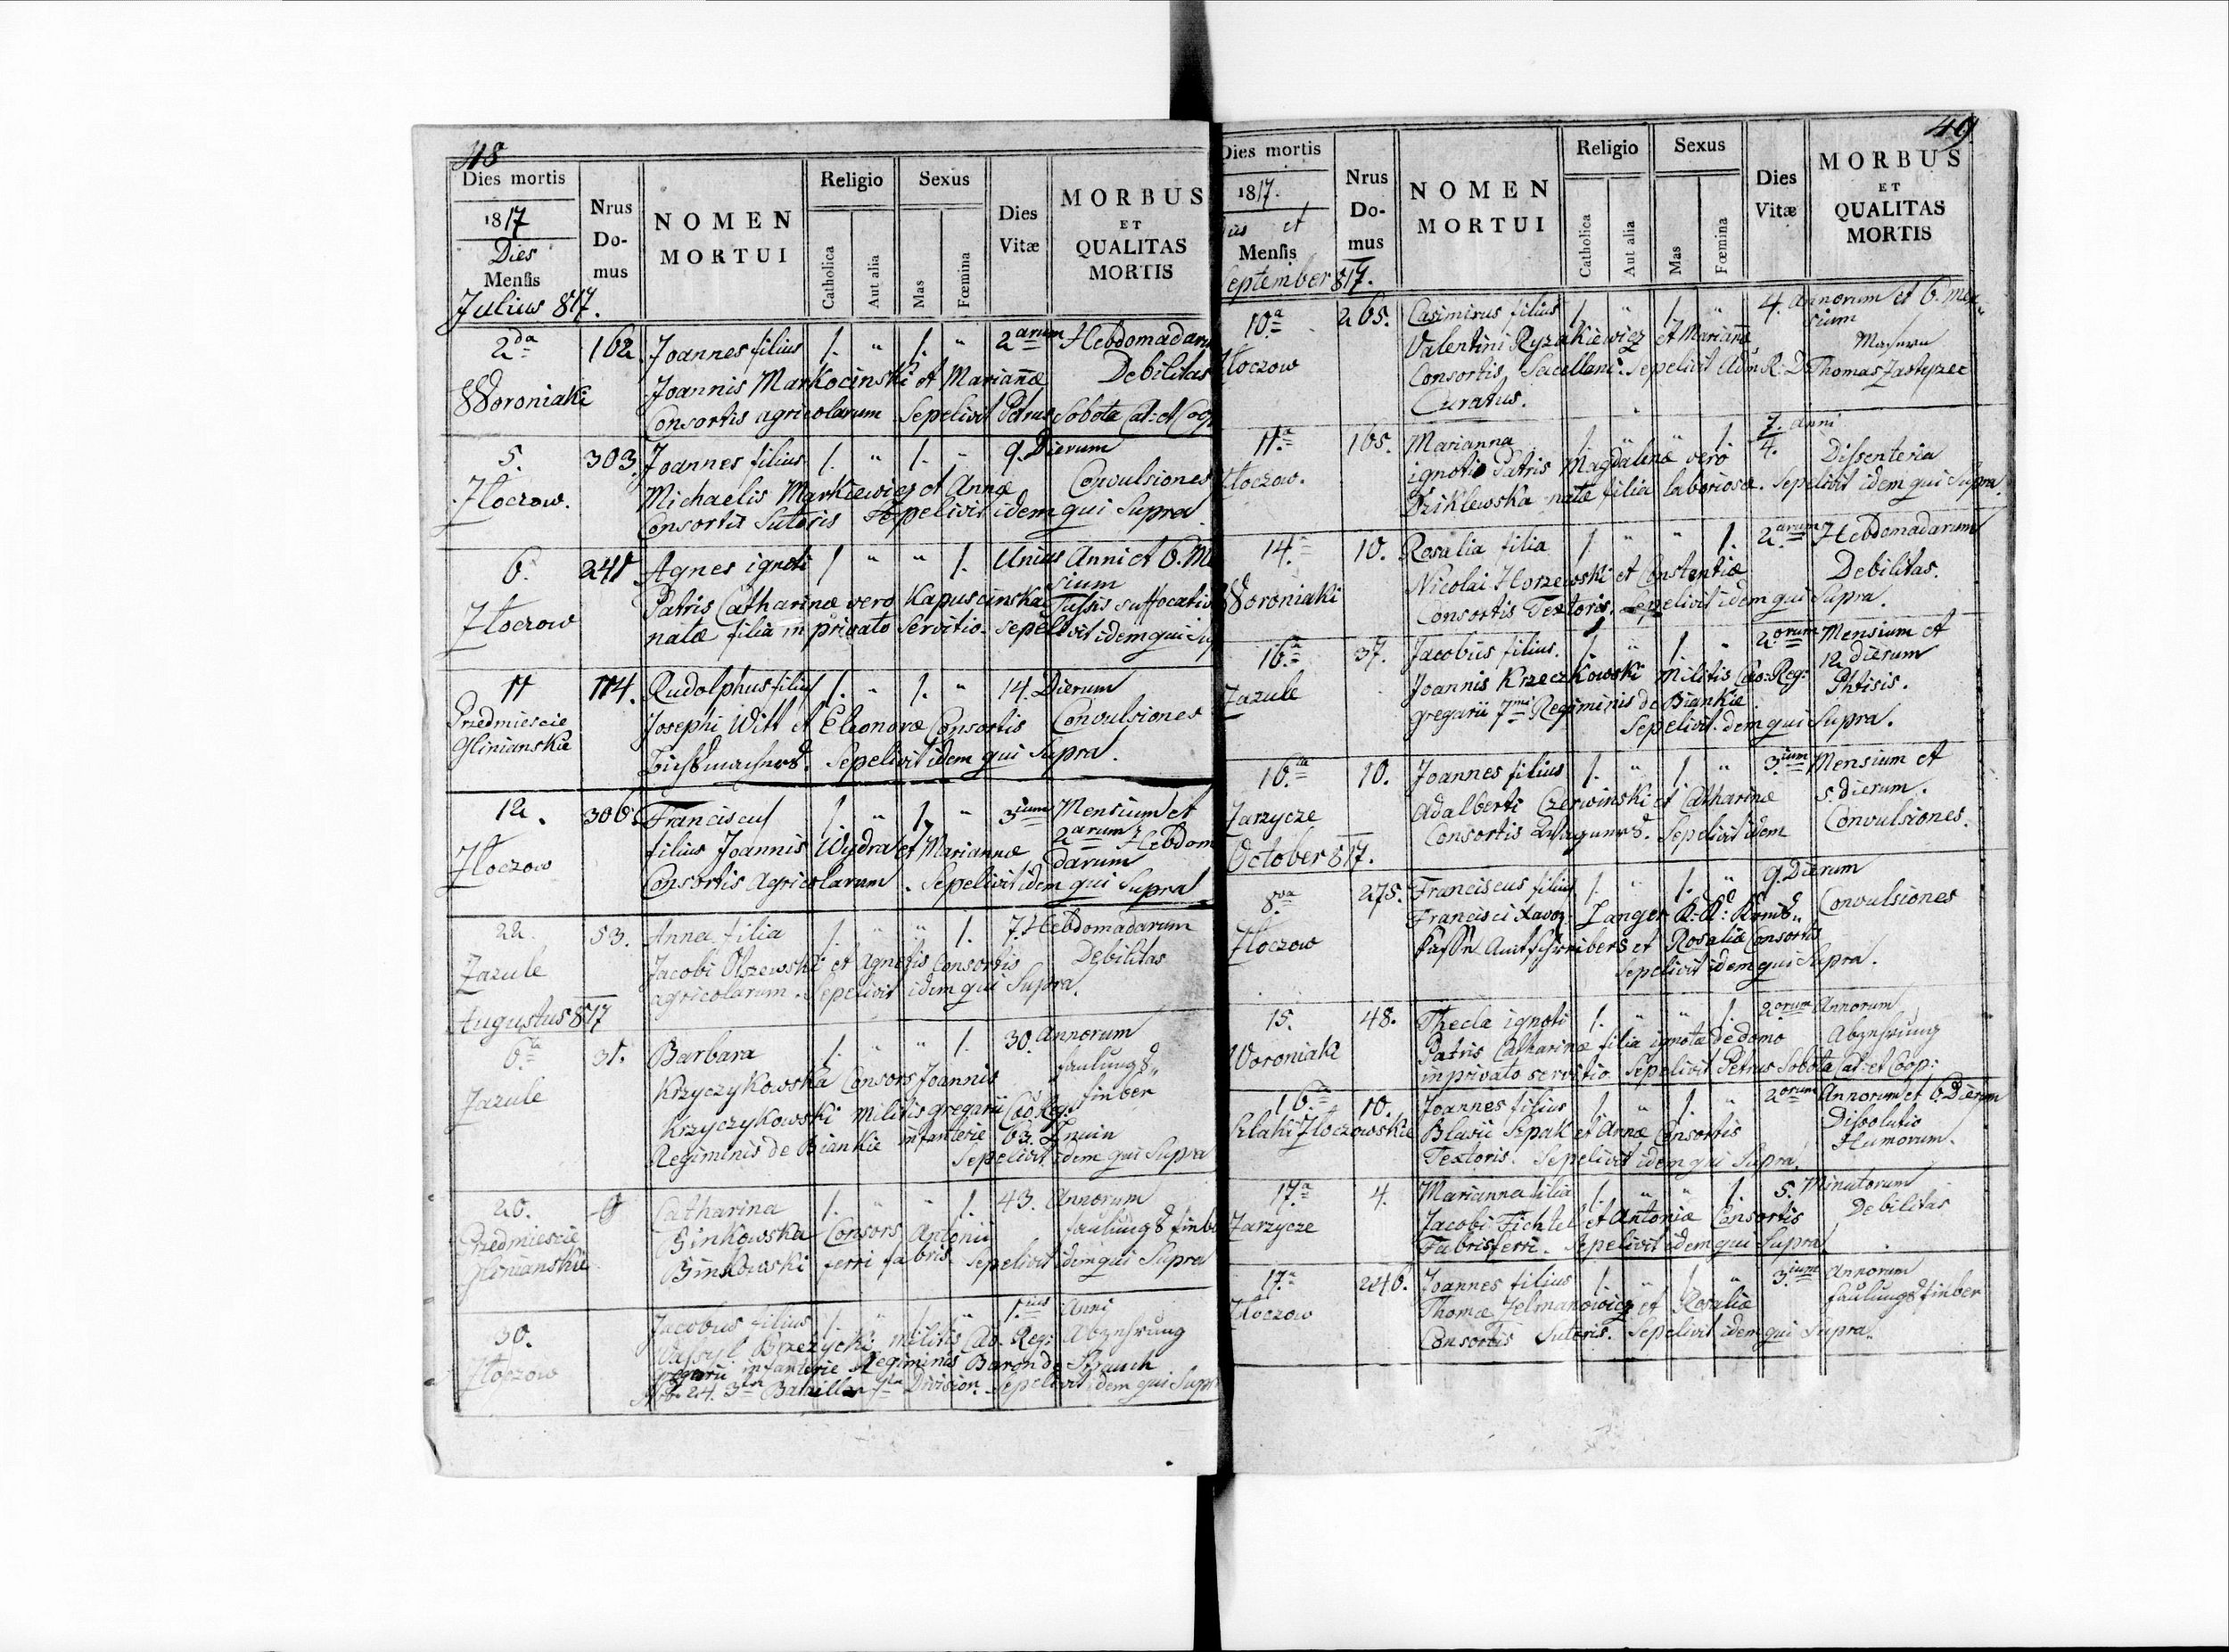 48
Dies mortis
1817
Dies
Mensis
Nrus
Do-
mus
NOMEN
MORTUI
Religio
Catholica
Aut alia
Sexus
Mas
Fœmina
Dies
Vitæ
MORBUS
ET
QUALITAS
MORTIS
Julius 817.
2da 162. Joannes filius 1. " 1. " 2arum Hebdomadaru
Woroniaki Joannis Markocinski et Mariannæ Debilitas
Consortis agricolarum Sepelivit Petrus Sobota Cat: et Coop
5. 303. Joannes filius 1. " 1. " 9. Dierum
Złoczow. Michaelis Markiewicz et Annæ Convulsiones
Consortis Sutoris Sepelivit idem qui Supra
6. 241 Agnes ignoti 1 " " 1. Unius Anni et 6. Me
sium
Złoczow Patris Catharinæ vero Kapuscinska Tussis suffocativ
natæ filia in privato Servitio. Sepelivit idem qui Sup
11 114. Rudolphus filius 1. " 1. " 14. Dierum
Przedmiescie Josephi Witt et Eleonoræ Consortis Convulsiones
Glinianskie Sepelivit idem qui Supra.
12. 306. Franciscus 1. " 1. " 3ium Mensium et
Złoczow filius Joannis Wydra et Mariannæ 2arum Hebdom
darum
Consortis Agricolarum. Sepelivit idem qui Supra
22. 53. Anna filia 1. " " 1. 7. Hebdomadarum
Zazule Jacobi Olszewski et Agnetis Consortis Debilitas
agricolarum. Sepelivit idem qui Supra.
Augustus 817
6ta 31. Barbara 1. " " 1. 30. Annorum
Zazule Krzyczykowska Consors Joannis faulungs"
Krzyczykowski Militis gregarii Cæs Reg: finber
Regiminis de Biankie infanterie 63.
Sepelivit idem qui Supra
20. Catharina 1. " " 1. 43. Annorum
Przedmiescie Binkowska Consors Antonii faulungs finbe
Glinianskie Binkowski ferri fabris Sepelivit idem qui Supra
30. Jacobus filius 1. " 1. " 1.ius Anni
Złoczow Wassyl Brzezycki Militis Cæs. Reg: Abzehrung
infanterie Regiminis Baron de Strauch
Nr 24. 3ten Bataillon Division. Sepelivit idem qui Supr
49
Dies mortis
1817.
et
Mensis
Nrus
Do-
mus
NOMEN
MORTUI
Religio
Catholica
Aut alia
Sexus
Mas
Fœmina
Dies
Vitæ
MORBUS
ET
QUALITAS
MORTIS
September 817.
10a 265. Casimirus filius 1. " 1. " 4. Annorum et 6. Men"
sium
Złoczow Valentini Ryzakiewicz et Mariannæ
Consortis, Sacellani. Sepelivit Adm R: D Thomas Zastyrzec
Curatus.
11a 165. Marianna 1. " " 1. 7. Anni
4.
Złoczow. ignoti Patris Magdalenæ vero Dissenteria
natæ filia laboriosæ. Sepelivit idem qui Supra.
14 10. Rosalia filia 1. " " 1. 2arum Hebdomadarum
Woroniaki Nicolai Horzewski et Constantiæ Debilitas.
Consortis Textoris. Sepelivit idem qui Supra.
16.a 37. Jacobus filius. 1. " 1. " 2.orum Mensium et
12 dierum
Zazule Joannis Krzeczkowski Militis Cæs: Reg: Phtisis.
gregarii 7mi Regiminis de Biankie
Sepelivit idem qui Supra.
16.ta 10. Joannes filius 1. " 1 " 3.ium Mensium et
5. dierum.
Zarzycze Adalberti Czerwinski et Catharinæ Convulsiones.
Consortis Sepelivit idem
October 817.
8.va 275. Franciscus filius 1. " 1. " 9. Dierum
Złoczow Francisci Xaver: Langer K: K: Kreis" Convulsiones
Kassen Amtschreibers et Rosaliæ Consortis
Sepelivit idem qui Supra.
15. 48. Thecla ignoti 1. " " 1. 2orum Annorum
Woroniaki Patris Catharinæ filia ignotæ de domo Abzehrung
in privato servitio Sepelivit Petrus Sobota Cat: et Coop:
16. 10. Joannes filius 1 " 1. " 2orum Annorum et 6 Dierum
Złoczowskie Blasii Szpak et Annæ Consortis Dissolutio
Humorum.
Textoris. Sepelivit idem qui Supra.
17.a 4. Marianna filia 1. " " 1. 5. Minutorum
Zarzycze Jacobi Fichtel et Antoniæ Consortis Debilitas
Fabris ferri. Sepelivit idem qui Supra
17.a 246. Joannes filius 1. " 1 " 3.ium Annorum
Złoczow Thomæ Zelmanowicz et Rosaliæ faulungs finber
Consortis Sutoris. Sepelivit idem qui Supra.